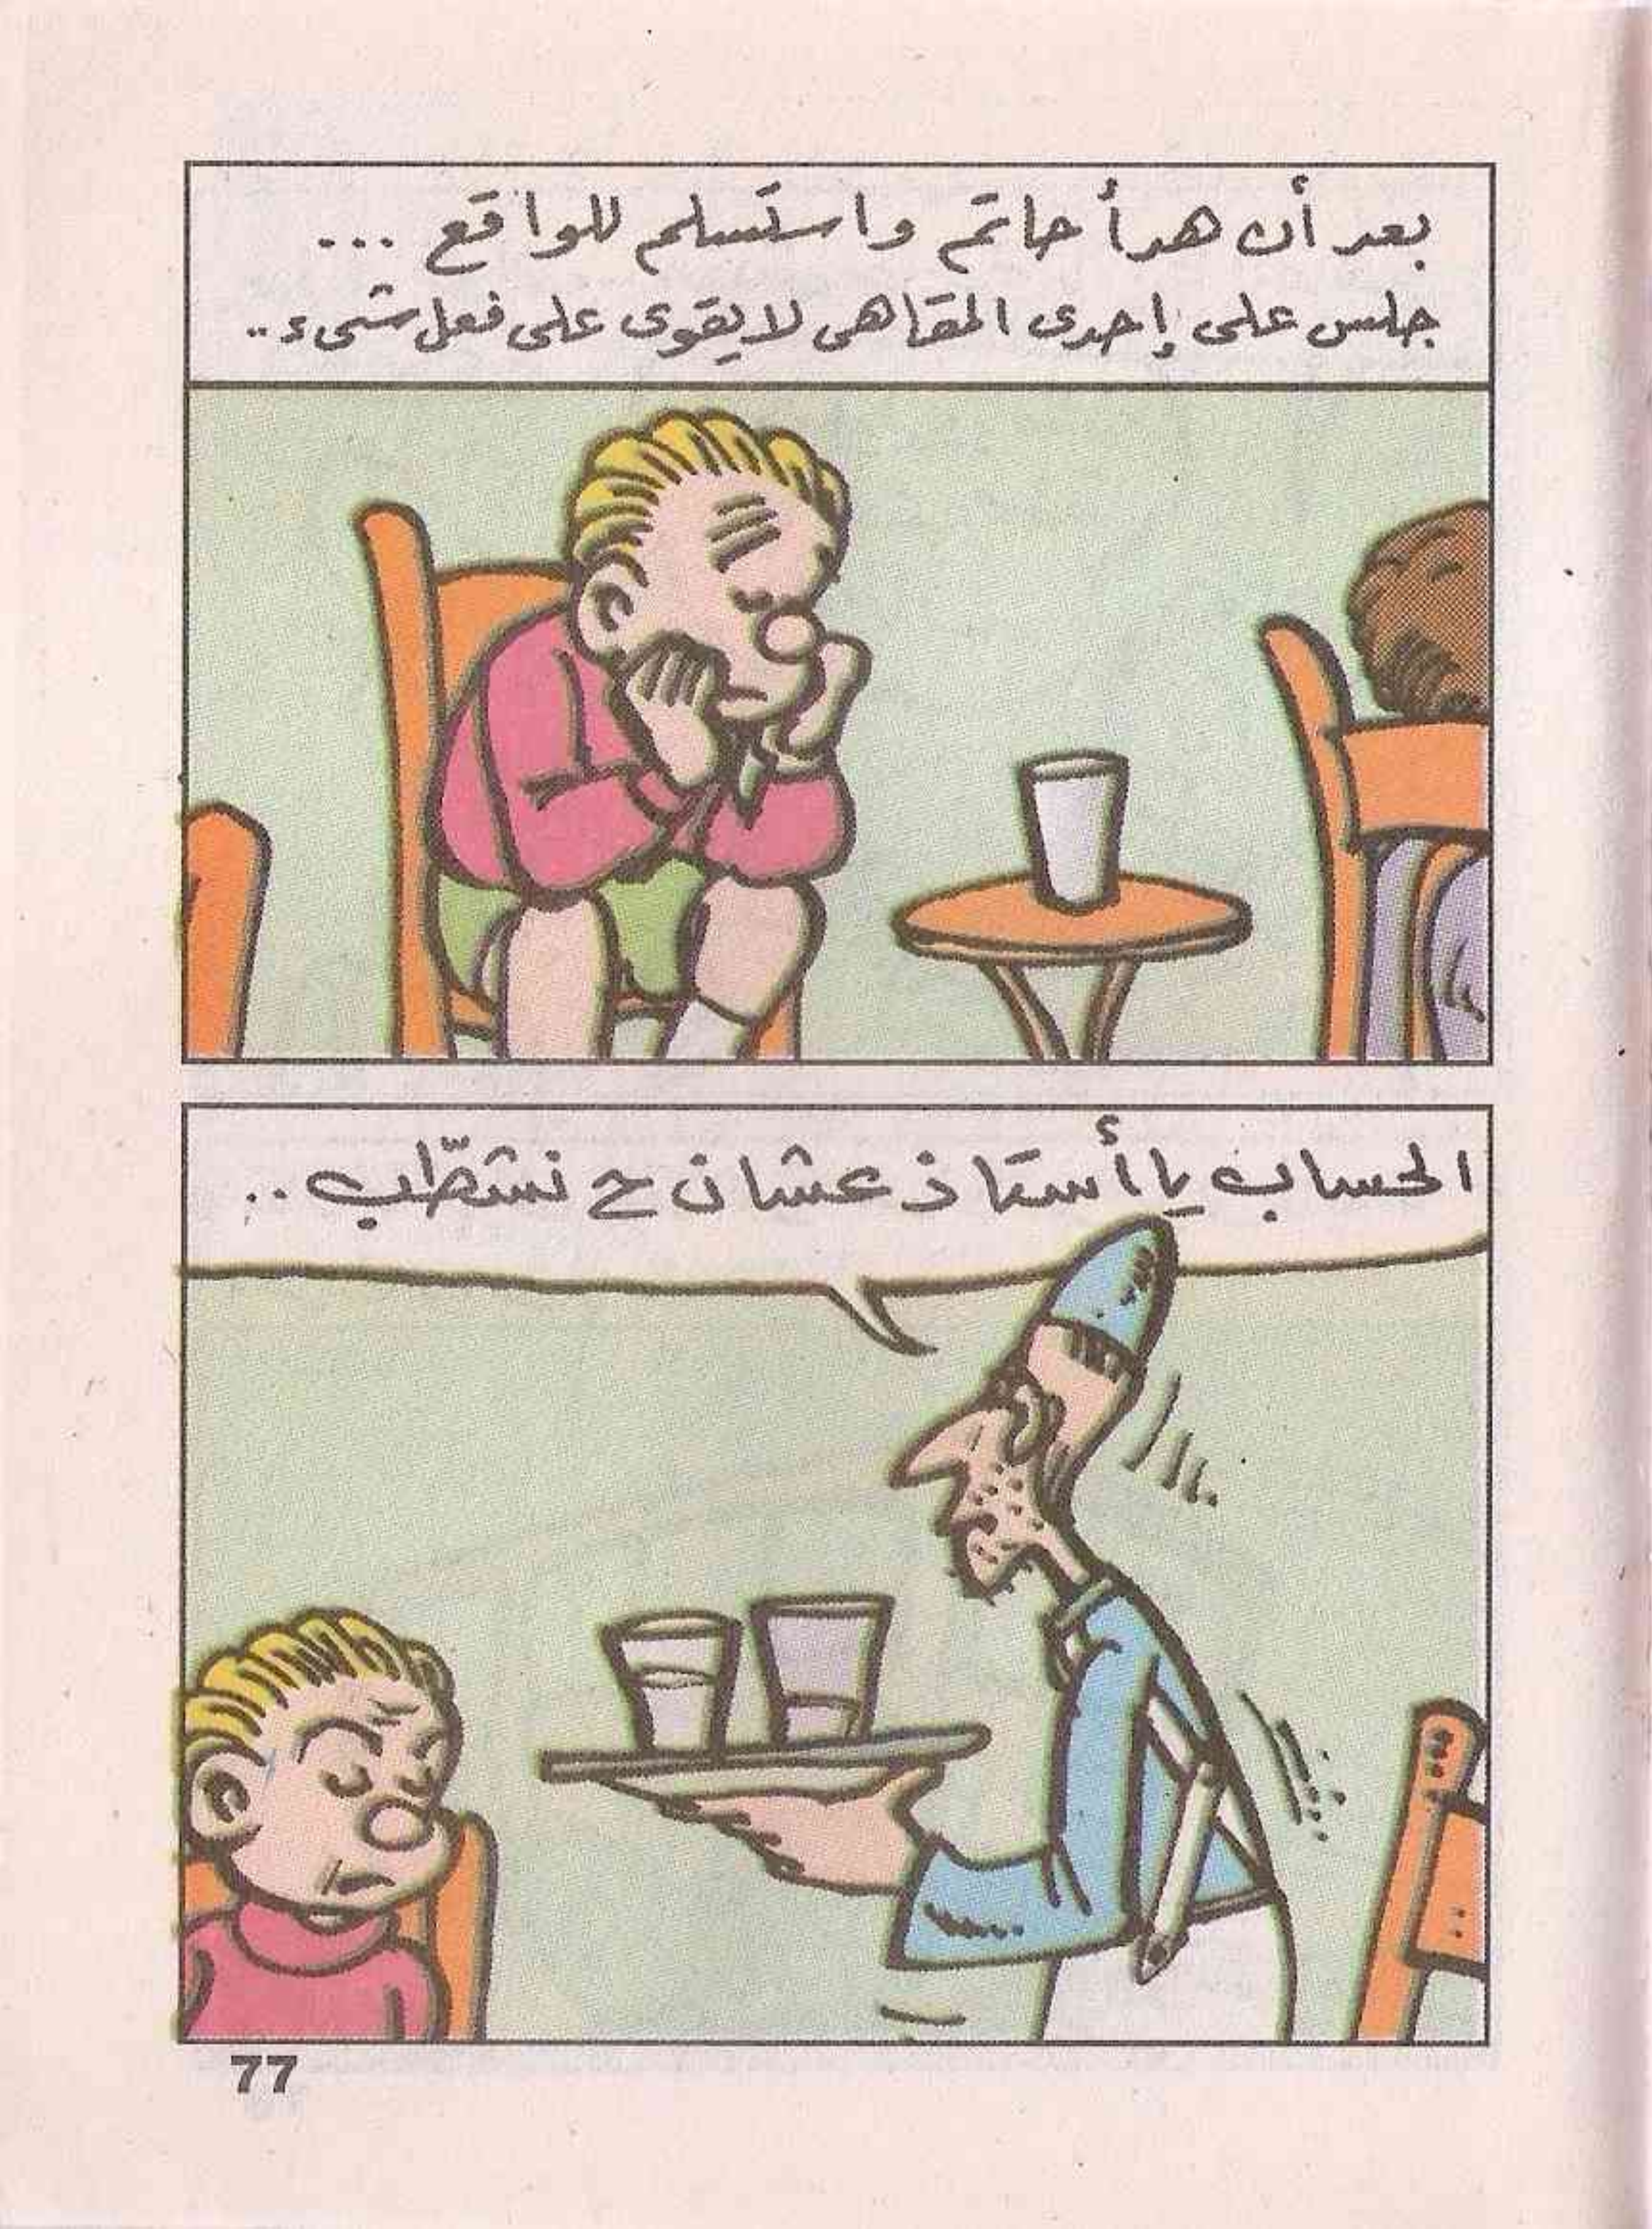 بعد أن هدأ حاتم واستسلم للواقع ...
جلس على إحدى المقاهى لا يقوى على فعل شىء ..
الحساب يا أستاذ عشان ح نشطّب ..
77